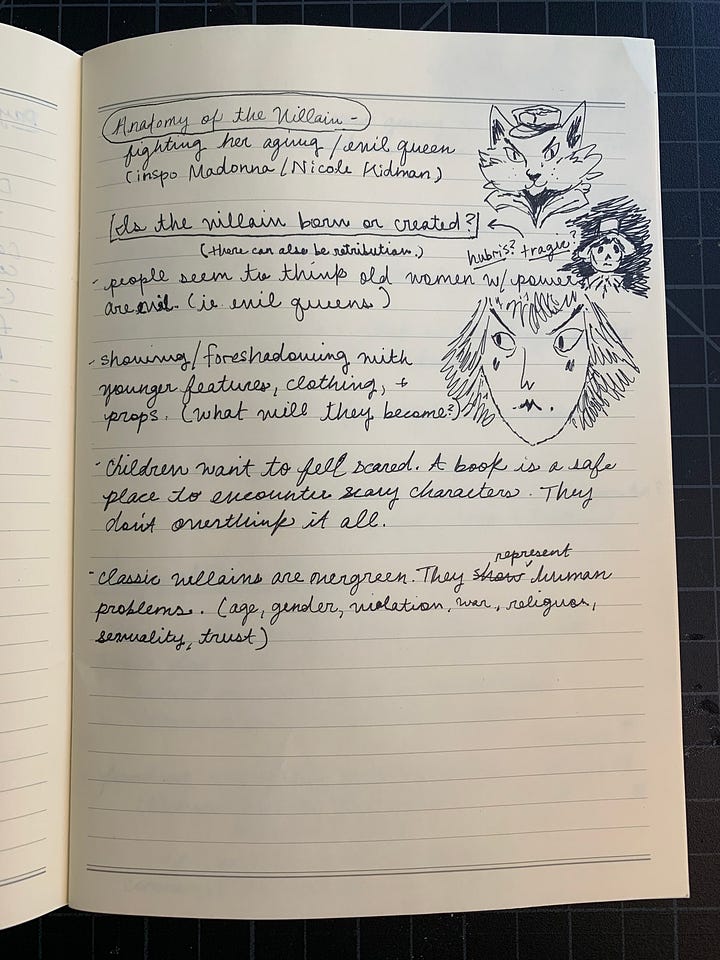 Anatomy of the Villain -
fighting her aging / evil queen
(inspo Madonna / Nicole Kidman)
[Is the villain born or created?]
(there can also be retribution.)
hubris? tragic?
- people seem to think old women w/ power
are evil. (ie evil queens)
- showing / foreshadowing with
younger features, clothing, +
props. (what will they become?)
- Children want to fell scared. A book is a safe
place to encounter scary characters. They
don't overthink it all.
represent
- Classic villains are evergreen. They show human
problems. (age, gender, violation, war, religion,
sexuality, trust)